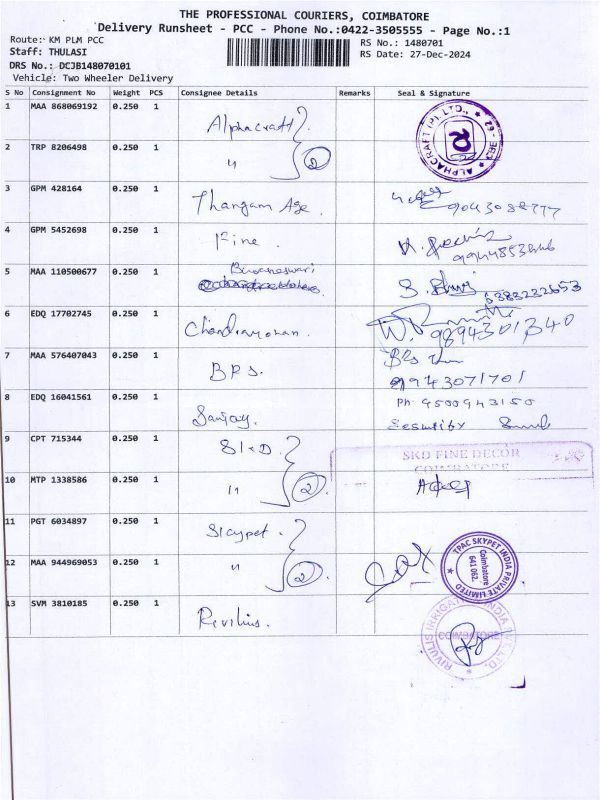 THE PROFESSIONAL COURIERS, COIMBATORE
Delivery Runsheet - PCC - Phone No.:0422-3505555 - Page No.:1
Route: KM PLM PCC
RS No.: 1480701
Staff: THULASI
RS Date: 27-Dec-2024
DRS No.: DCJB148070101
Vehicle: Two Wheeler Delivery
S No Consignment No Weight PCS Consignee Details Remarks Seal & Signature
1 MAA 868069192 0.250 1 Alphacraft
ALPHACRAFT (P) LTD.,
2 TRP 8206498 0.250 1 " 2
3 GPM 428164 0.250 1 Thangam Age
4 GPM 5452698 0.250 1 Fine
5 MAA 110500677 0.250 1 Buvaneswari
6383232653
6 EDQ 17702745 0.250 1 Chandramohan.
9894301340
7 MAA 576407043 0.250 1 BPS.
9943071701
8 EDQ 16041561 0.250 1 Sanjay. Ph 9500943150
Security
9 CPT 715344 0.250 1 SKD
SKD FINE DECOR
COIMBATORE
10 MTP 1338586 0.250 1 " 2
11 PGT 6034897 0.250 1 Skypet.
12 MAA 944969053 0.250 1 " 2
TPAC SKYPET INDIA PRIVATE LIMITED
Coimbatore
641 062.
13 SVM 3810185 0.250 1 Rivilius.
RIVULIS IRRIGATION INDIA PVT. LTD.
COIMBATORE